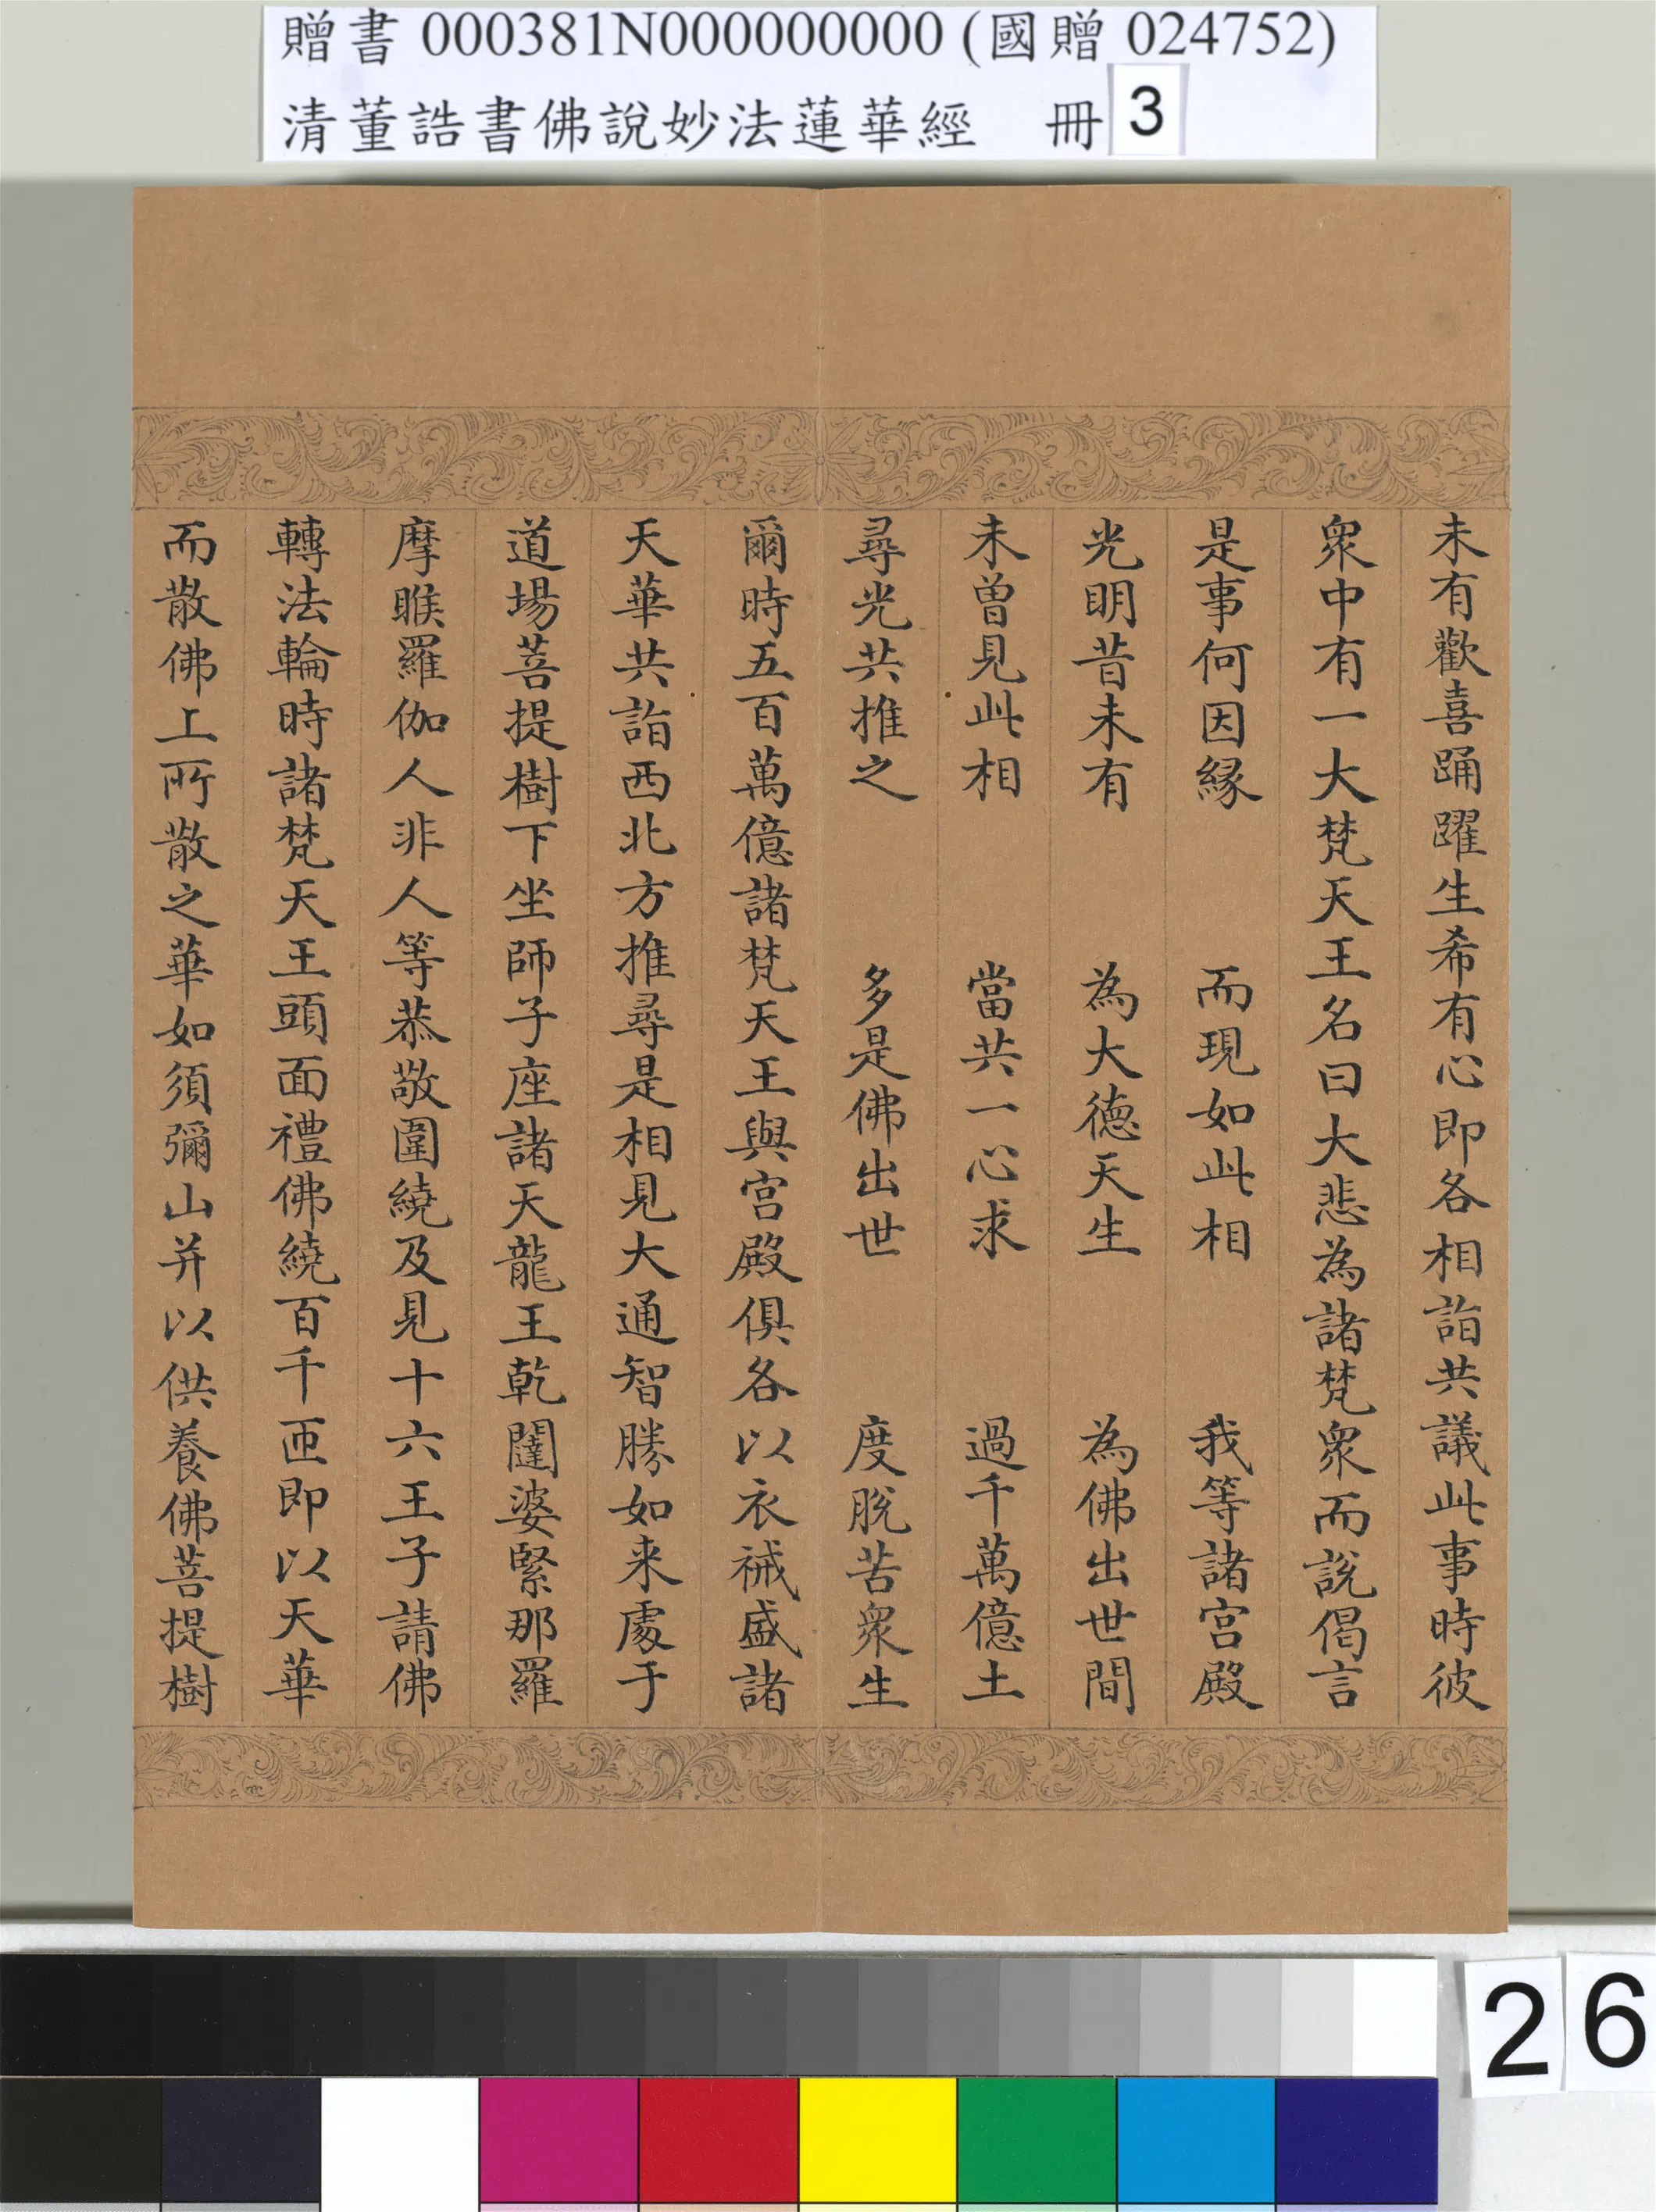 贈書 000381N000000000 (國贈 024752)
清董誥書佛說妙法蓮華經 冊 3
未有歡喜踊躍生希有心即各相詣共議此事時彼
眾中有一大梵天王名曰大悲為諸梵眾而說偈言
是事何因緣 而現如此相 我等諸宮殿
光明昔未有 為大德天生 為佛出世間
未曾見此相 當共一心求 過千萬億土
尋光共推之 多是佛出世 度脫苦眾生
爾時五百萬億諸梵天王與宮殿俱各以衣祴盛諸
天華共詣西北方推尋是相見大通智勝如来處于
道場菩提樹下坐師子座諸天龍王乾闥婆緊那羅
摩睺羅伽人非人等恭敬圍繞及見十六王子請佛
轉法輪時諸梵天王頭面禮佛繞百千匝即以天華
而散佛上所散之華如須彌山并以供養佛菩提樹
26